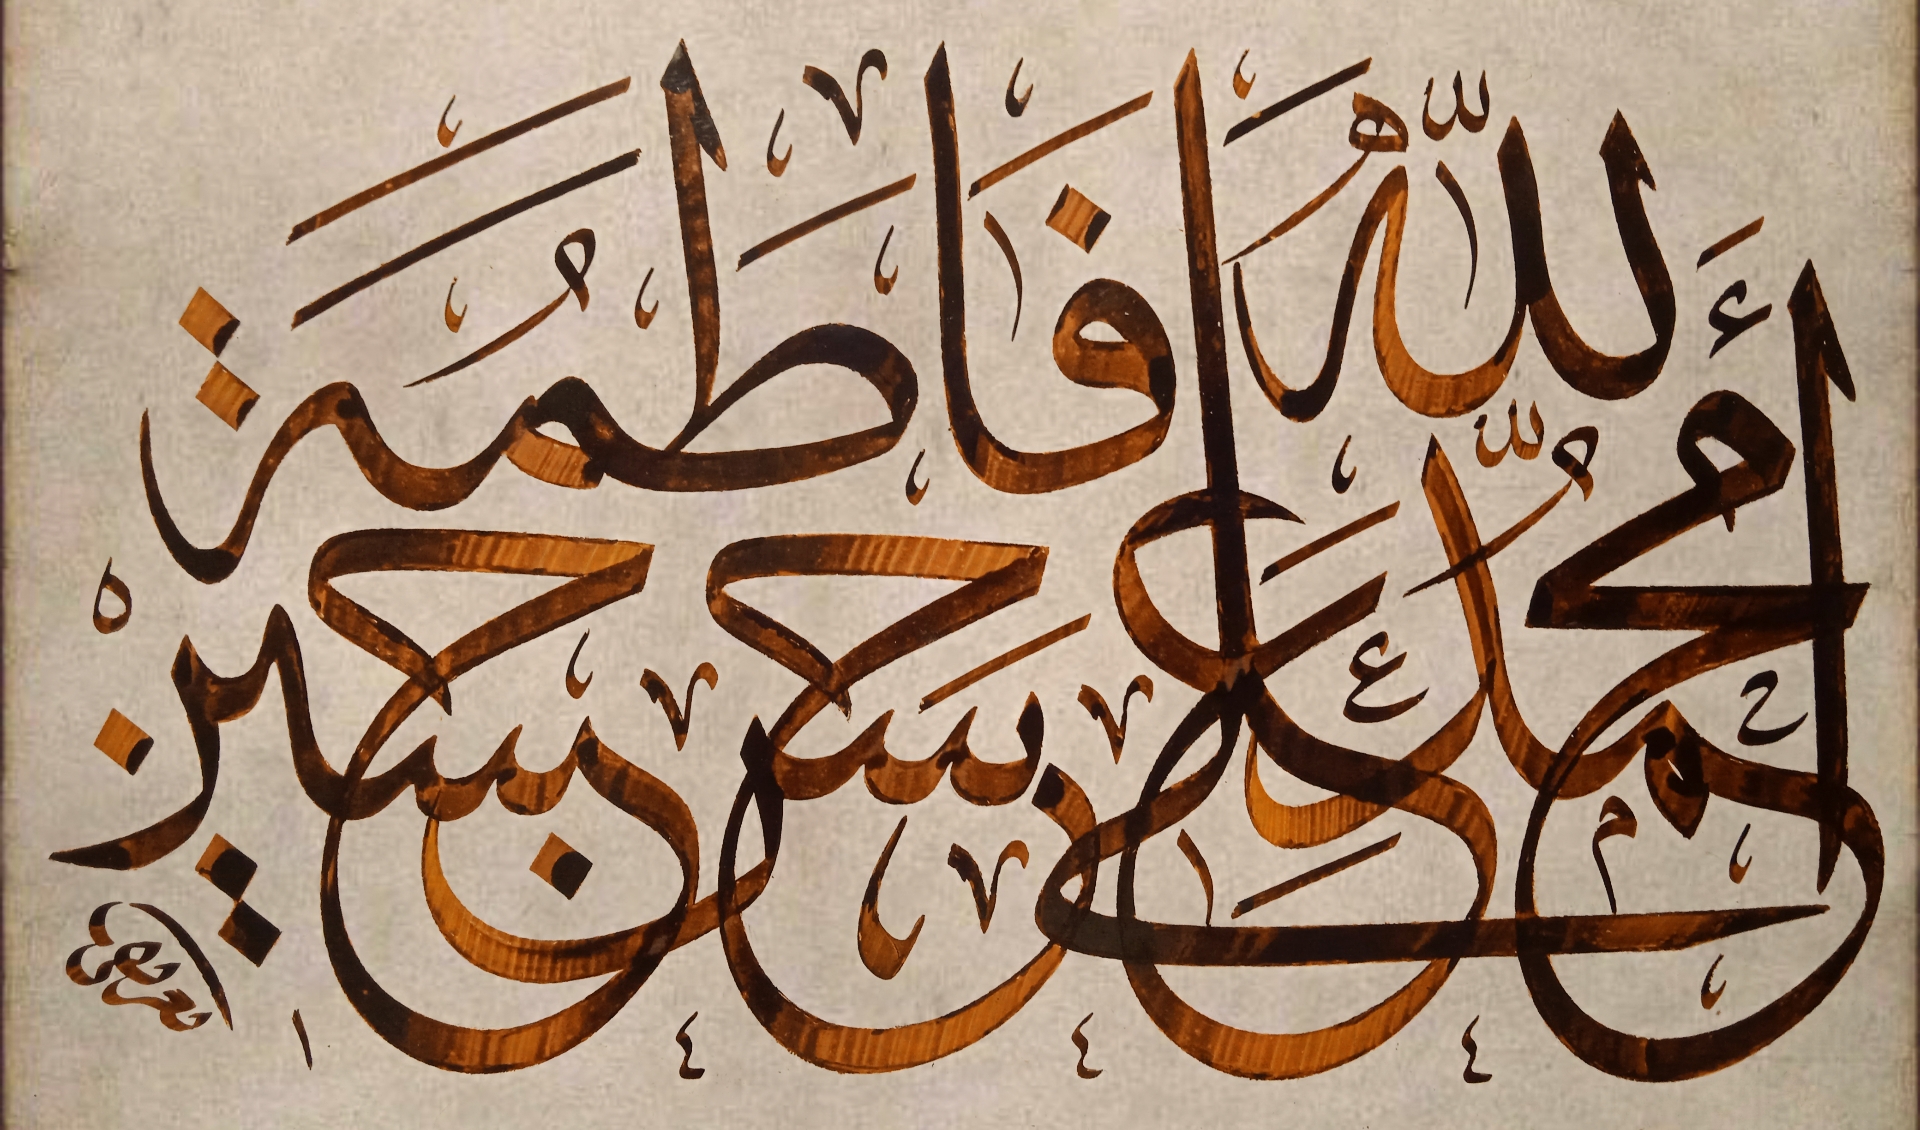 أللّه محمّد علي
فاطمة حسن حسين
١٤٤٤